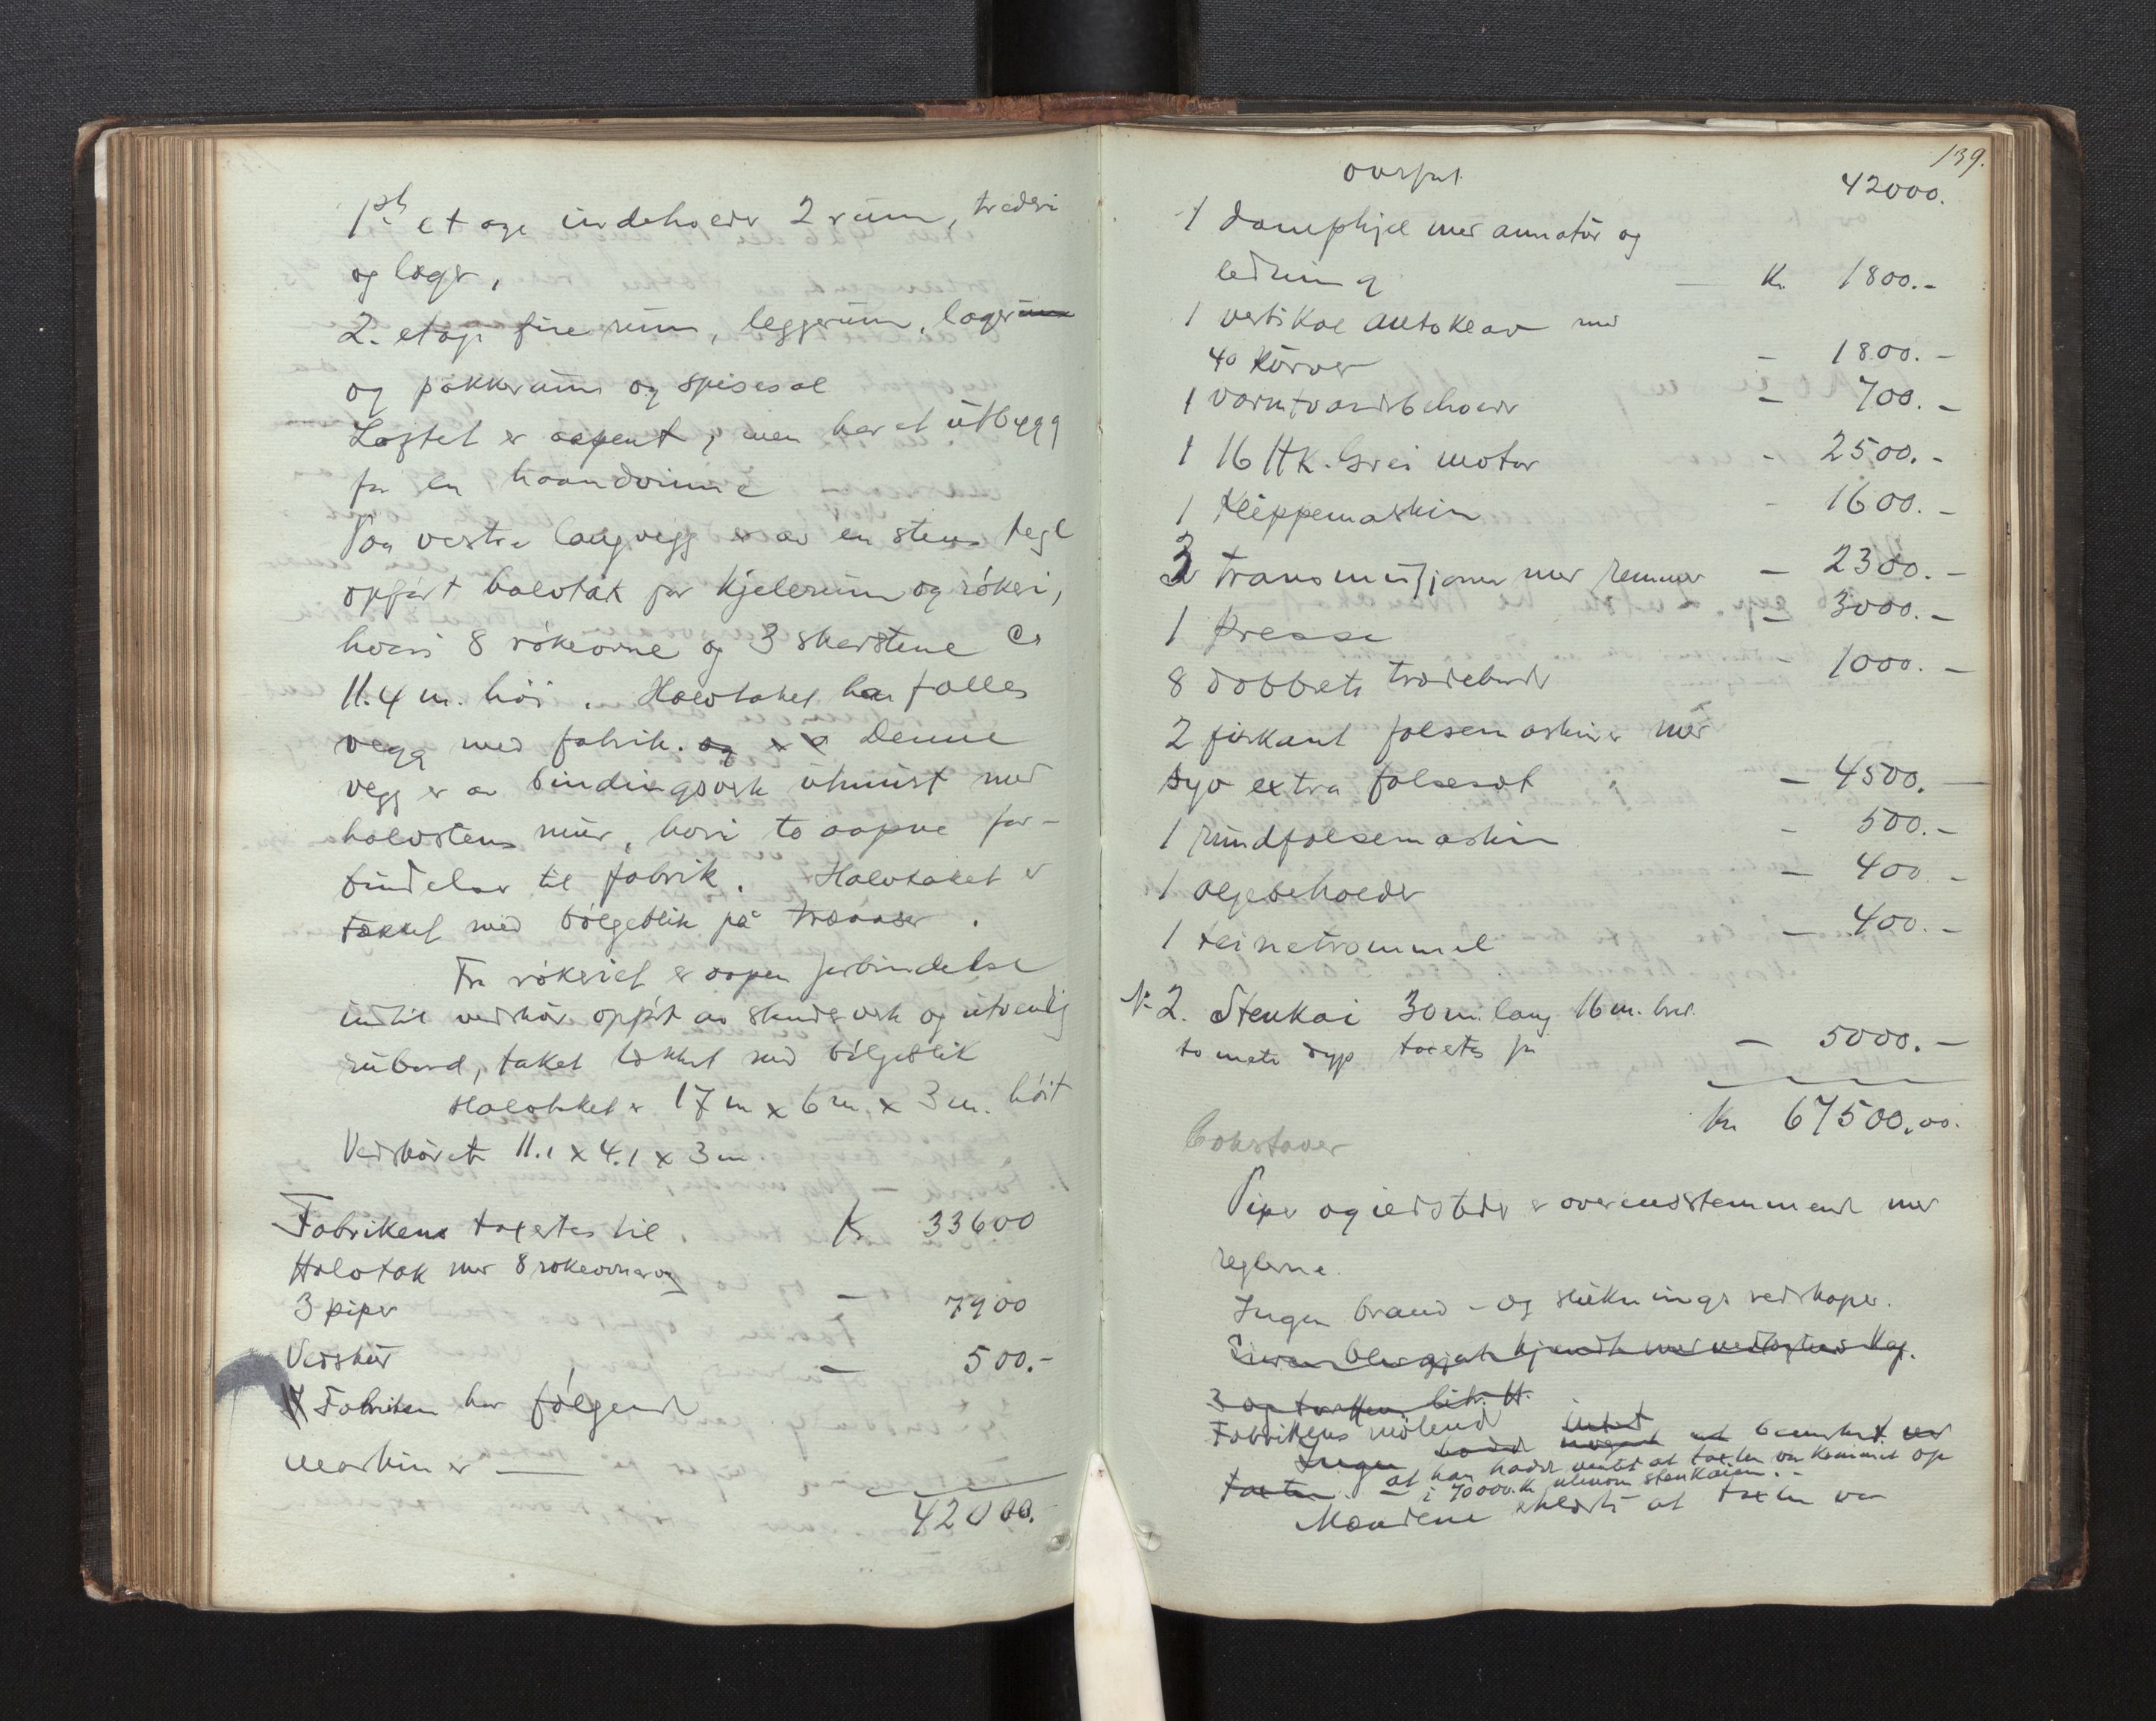 1ste etage indeholder 2 rum, træderi
og lager,
2. etage fire rum, leggerum, lagerrum
og pakkerum og spisesal
Loftet er aapent, men har et utbygg
for en haandvinne
Paa vestre langvegg er av en stens tegl
opført halvtak for kjelerum og røkeri,
hvori 8 røkeovne og 3 skorstene ca
11.4 m. høi. Halvtaket har fælles
vegg med fabrik. og Denne
vegg er av bindingsverk utmurt med
halvstens mur, hvori to aapne for-
bindelser til fabrik. Halvtaket er
tækket med bølgeblik på træaaser.
Fra røkeriet er aapen forbindelse
indtil vedskur opført av stenderverk og utvendig
rubord, taket tækket med bølgeblik
Halvtaket er 17 m x 6 m. x 3 m. høit
Vedskuret 11.1 x 4.1 x 3 m.
Fabrikens taxertes til Kr 33600
Halvtak med 8 rokeovner og
3 piper – 7900
Vedskur – 500.-
Fabriken har følgende
maskiner —
42000.
139.
overført 42000.
1 dampkjel med armatur og
ledning — Kr. 1800.-
1 vertikal autoklav med
40 kurver – 1800.-
1 varmtvandsbeholder – 700.-
1 16 HK. Grei motor - 2500.-
1 Klippemaskin - 1600.-
3 transmisjoner med remmer – 2300.-
1 presse – 3000.-
8 dobbelte trædebord - 1000.-
2 firkant falsemaskiner med
syv extra falsesæt – 4500.-
1 rundfalsemaskin - 500.-
1 oljebeholder – 400.-
1 teinetrommel – 400.-
No 2. Stenkai 30 m. lang 16 m. bred.
to meter dyp taxertes for – 5000.-
Kr 67500,00.
bokstaver
Piper og ildsteder er overensstemmende med
reglerne.
Ingen brand- og slukningsredskaper.
3 og takken litr. H.
Fabrikens møtende intet
Ingen hadde noget at bemerket ved
taxten – at han hadde ventet at taxten var kommet op
i 70000 kr utenom stenkaien. -
Mændene erklærte at taxten var